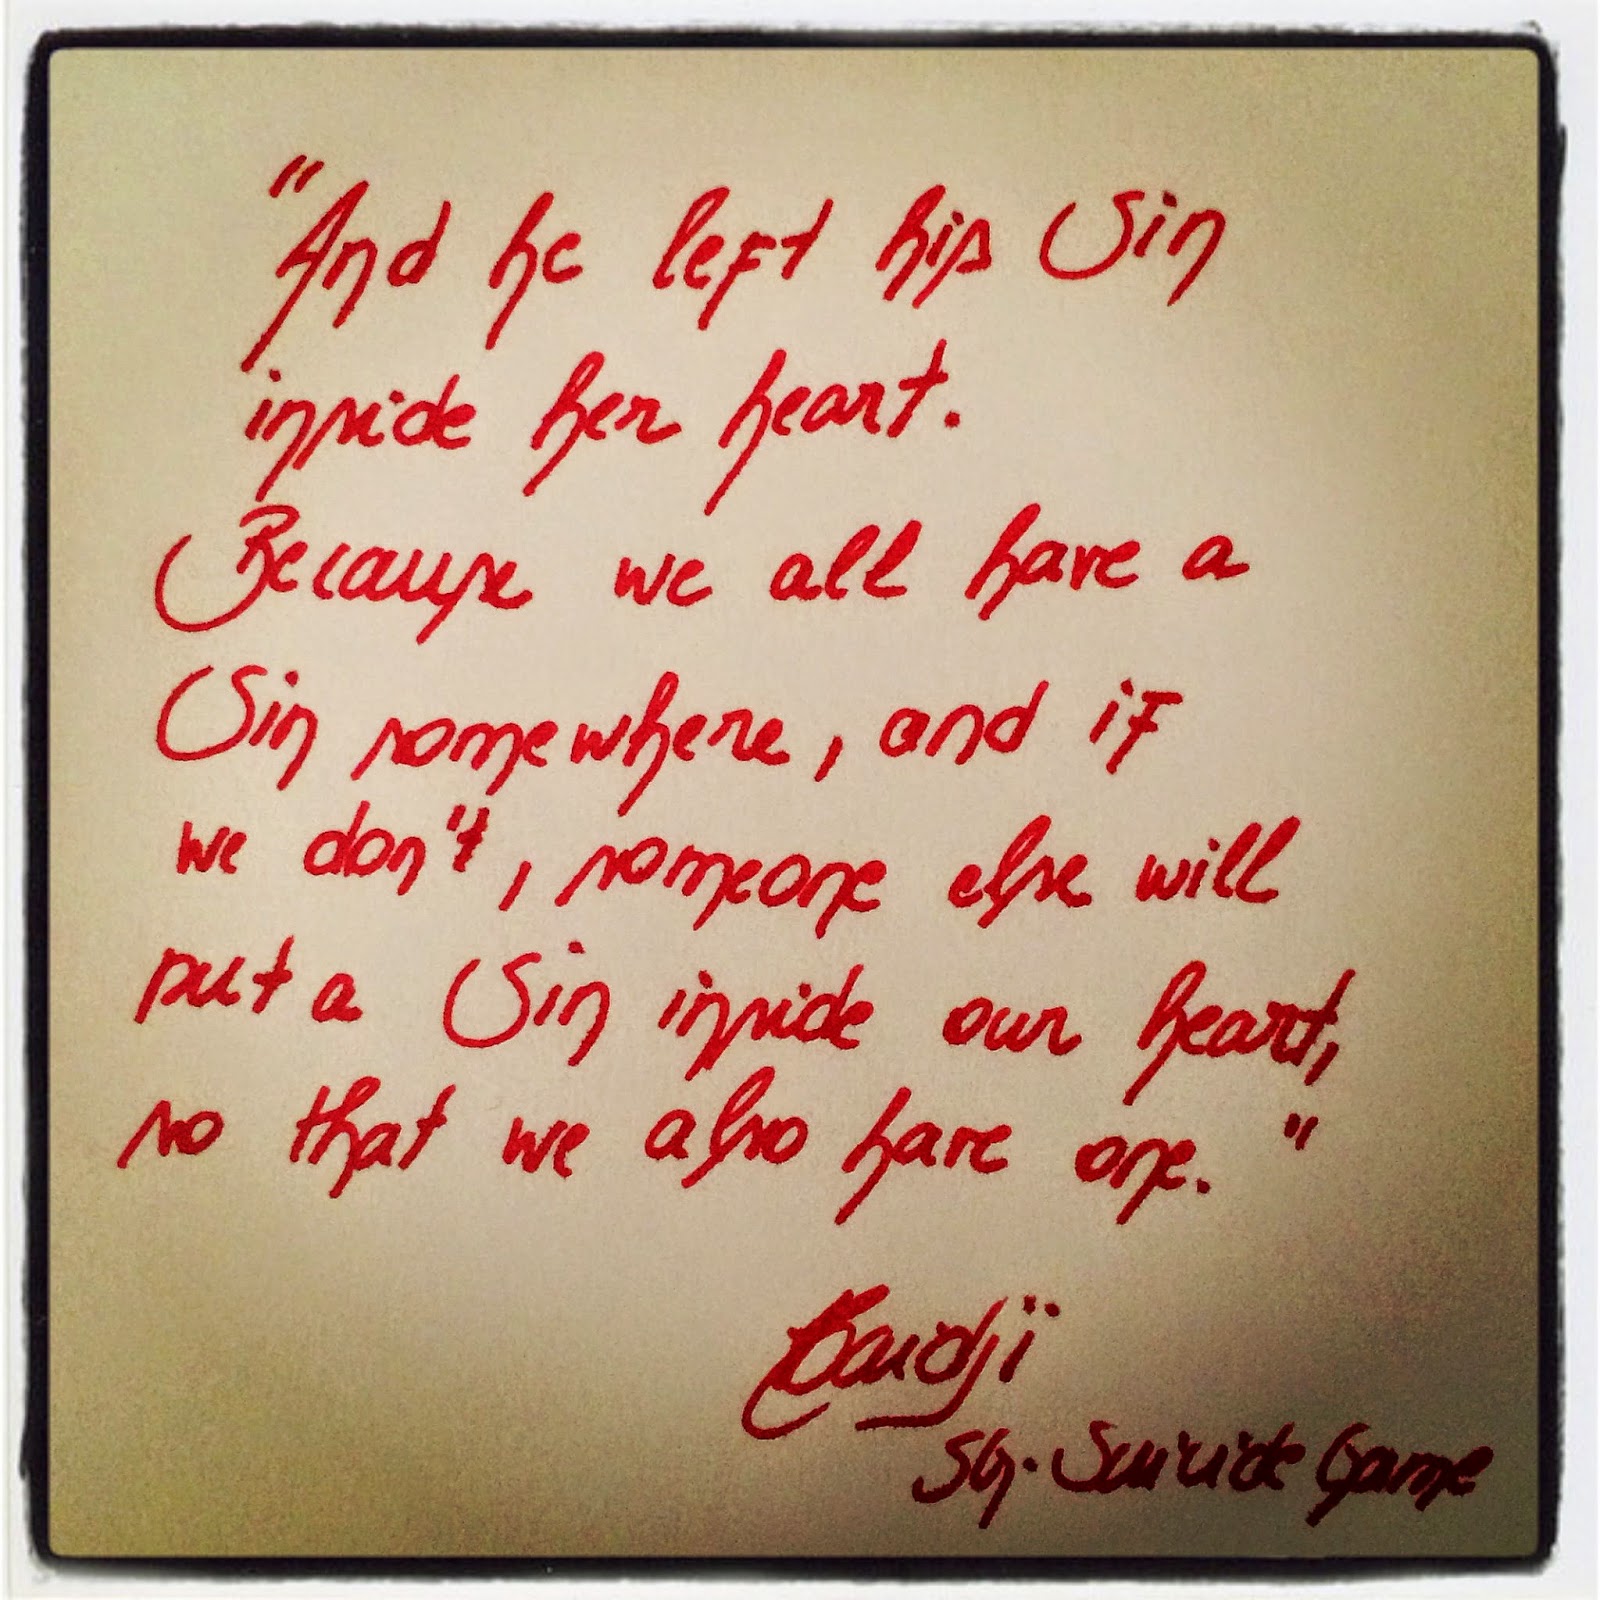 "And he left his Sin
inside her heart.
Because we all have a
Sin somewhere, and if
we don't, someone else will
put a Sin inside our heart,
so that we also have one."
Baidji
SG. Suicide Game